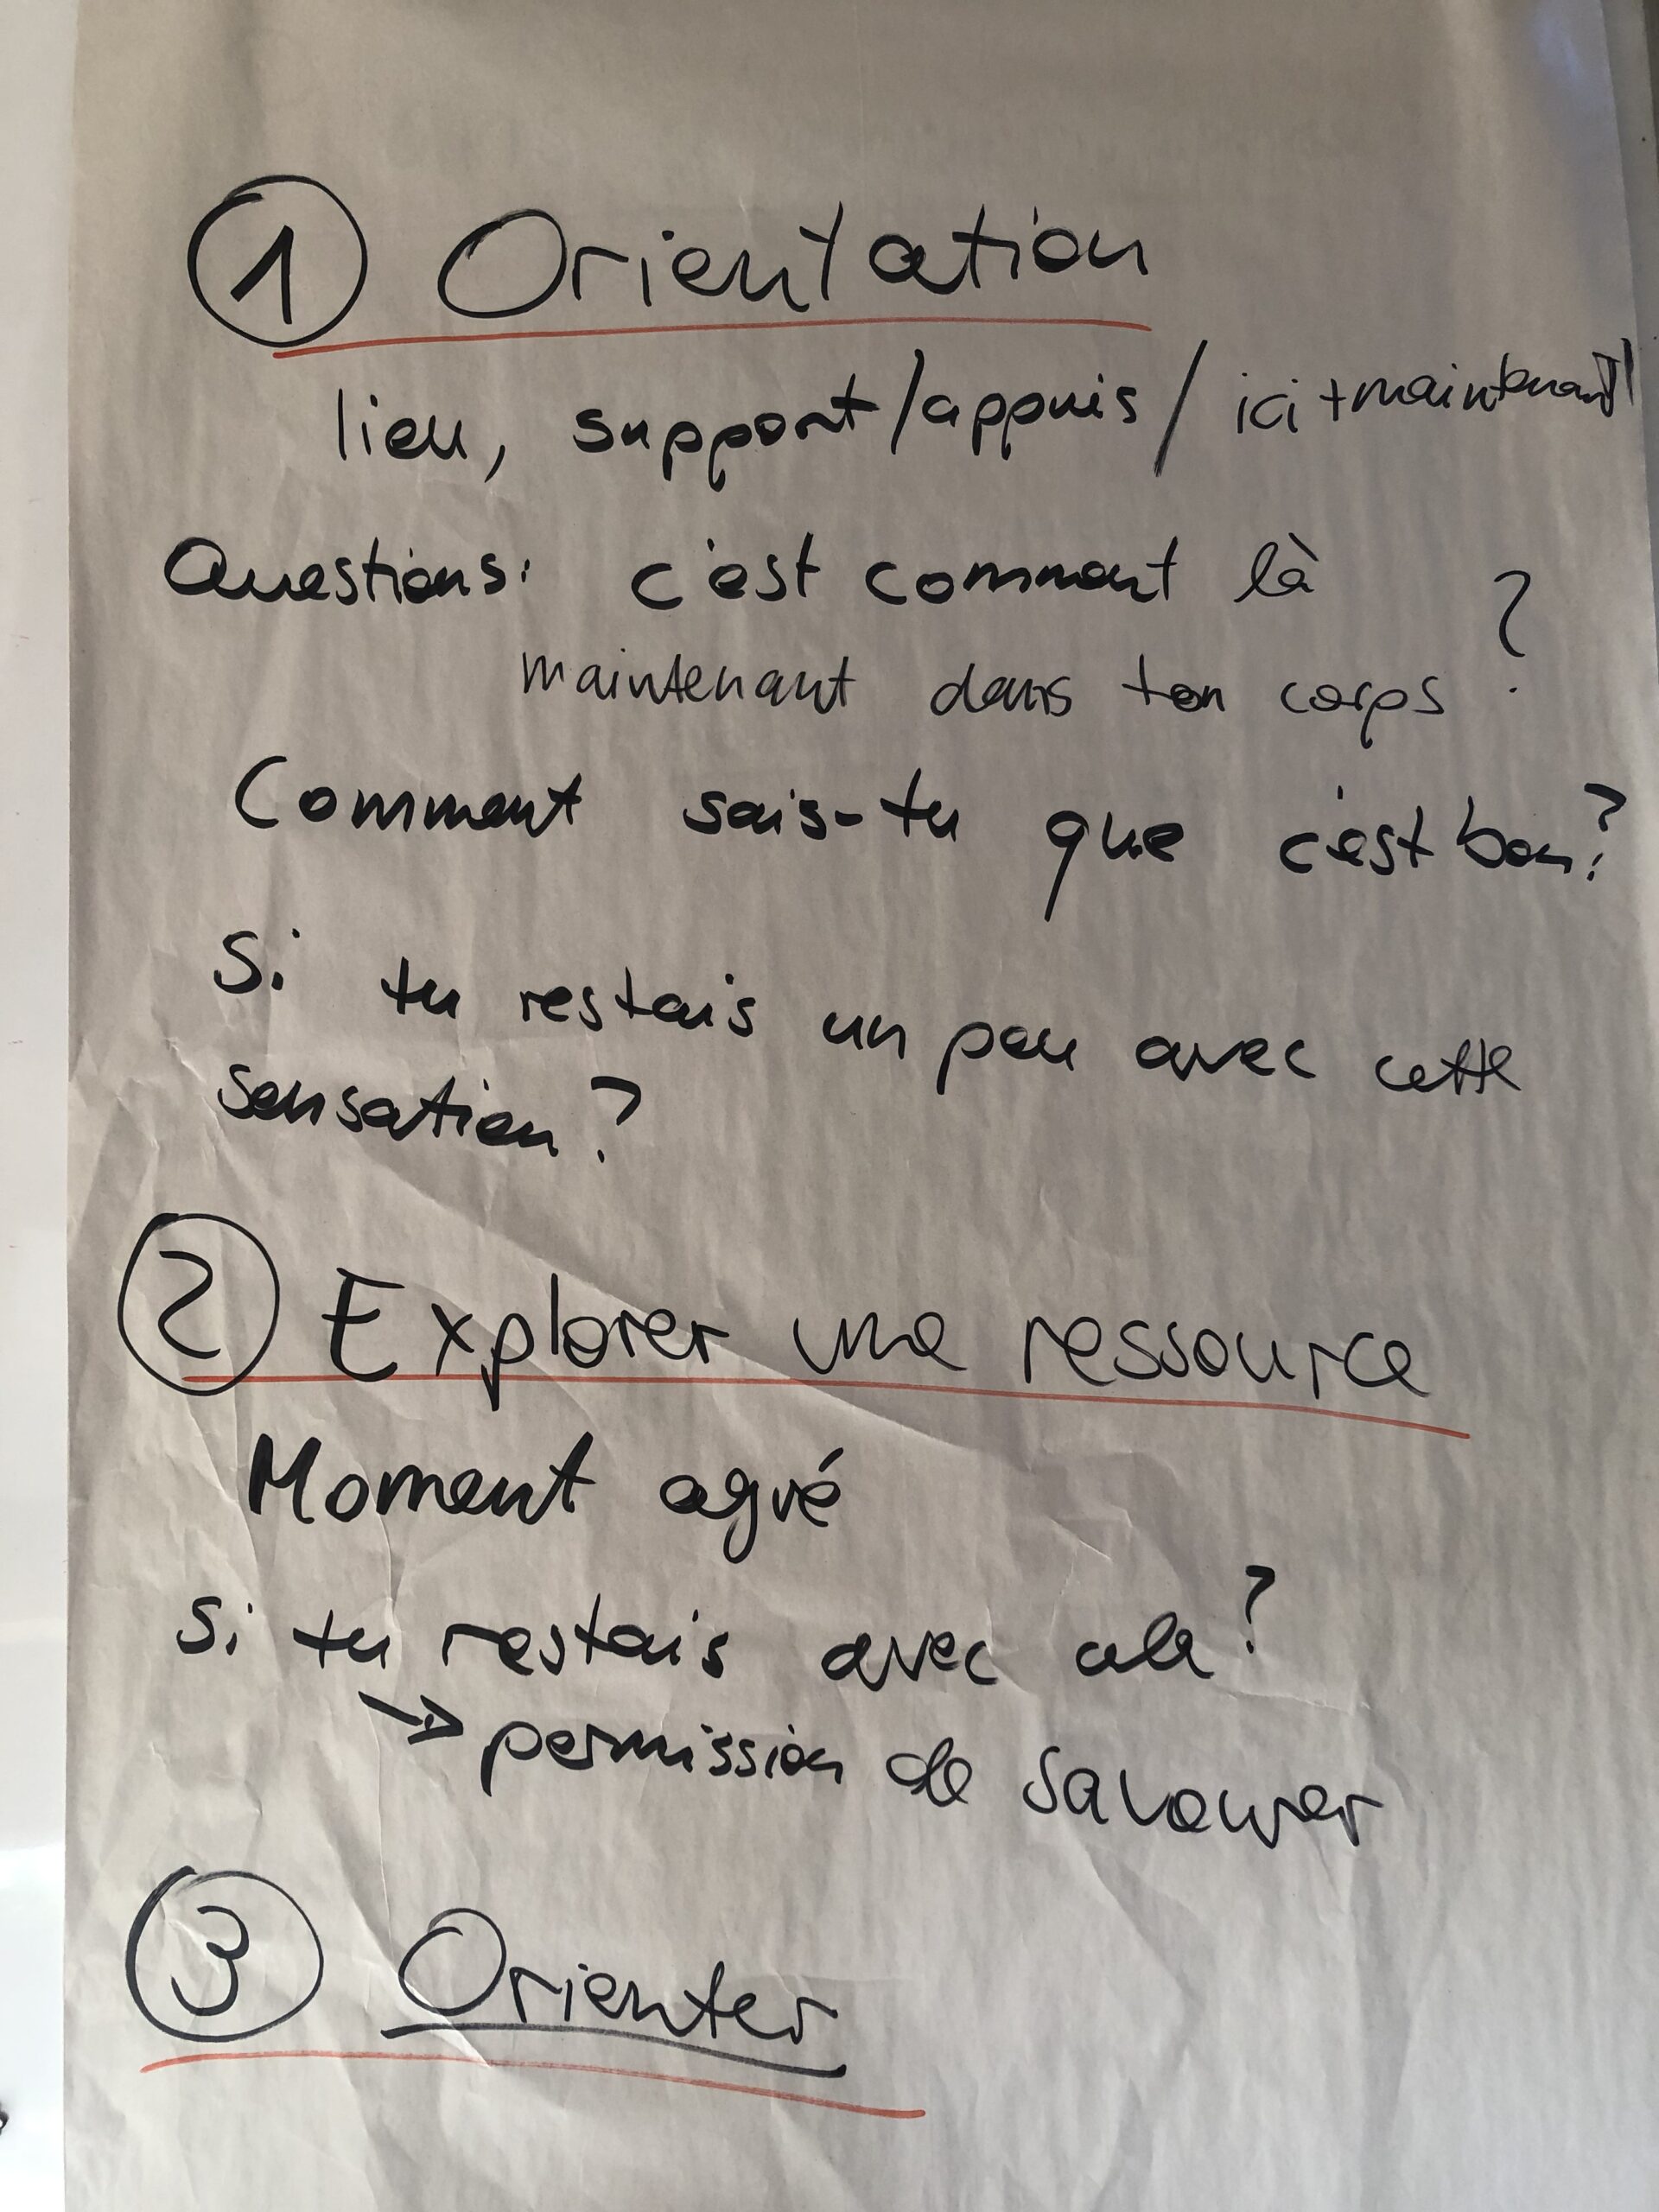 1 Orientation
lieu, support/appuis/ ici+maintenant
Questions: c'est comment là
maintenant dans ton corps ?
Comment sais-tu que c'est bon?
Si tu restais un peu avec cette
sensation?
2 Explorer une ressource
Moment agré
Si tu restais avec cela?
→ permission de savourer
3 Orienter